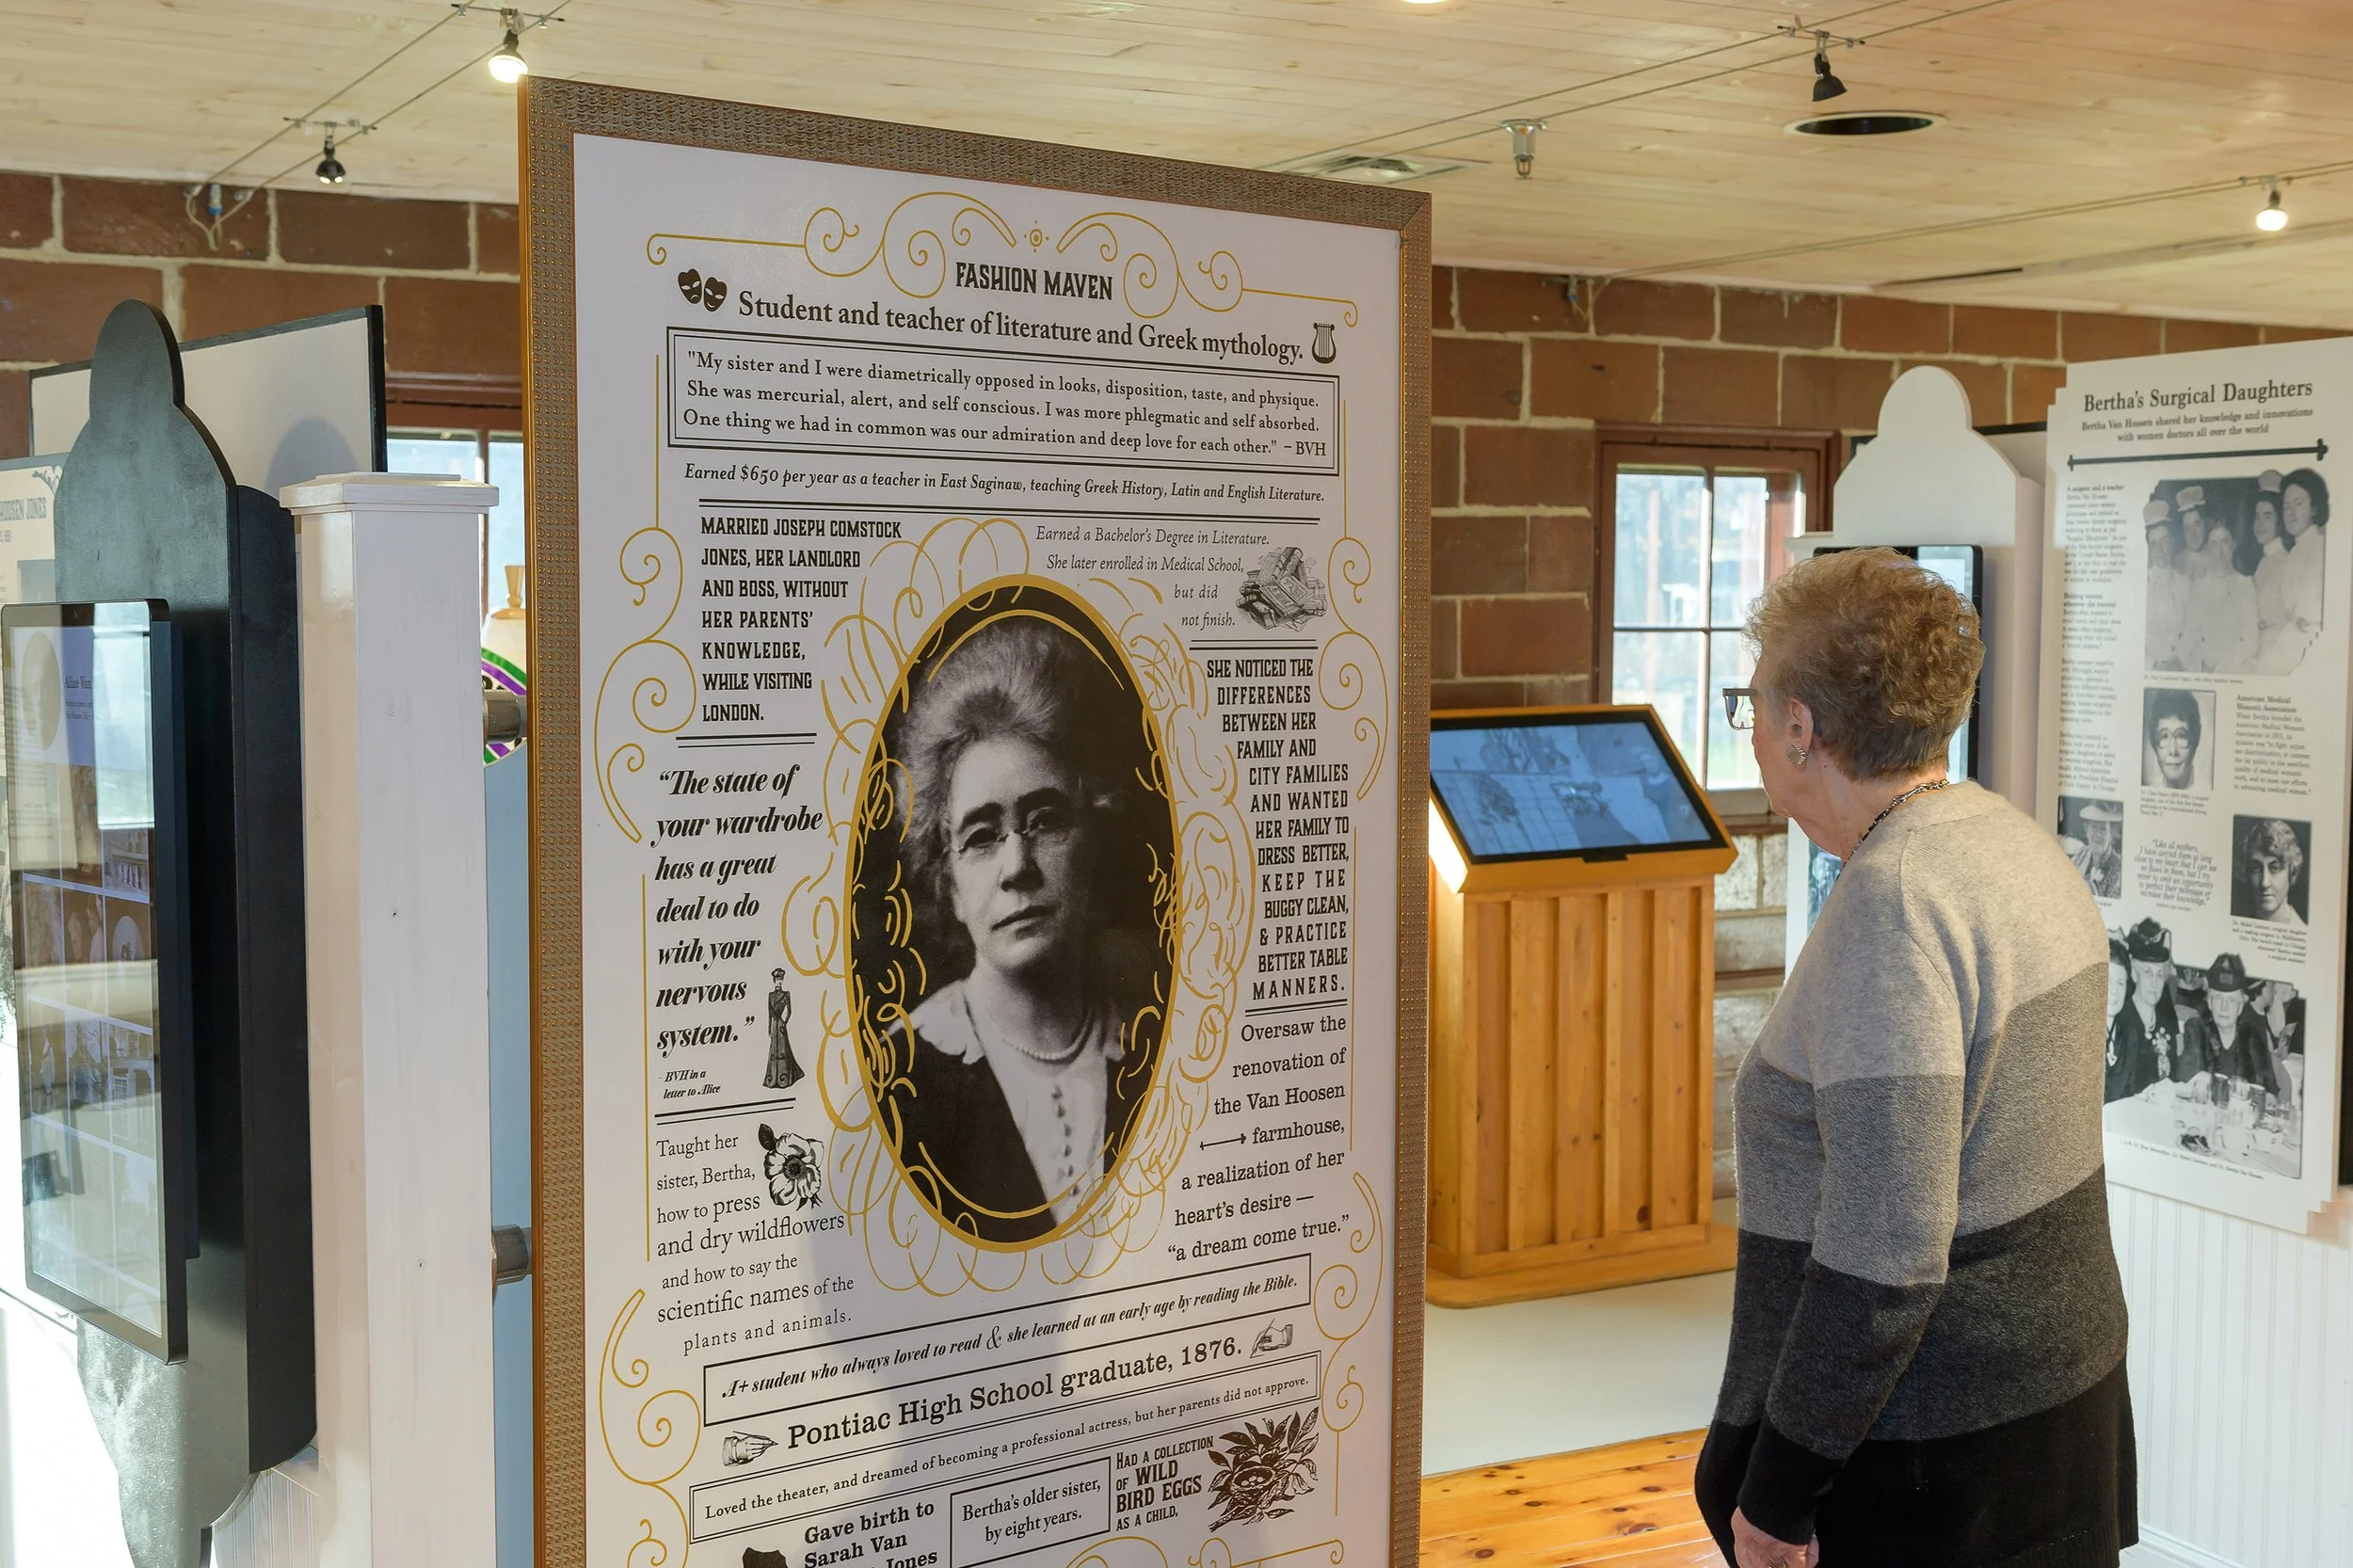 FASHION MAVEN
Student and teacher of literature and Greek mythology.
"My sister and I were diametrically opposed in looks, disposition, taste, and physique.
She was mercurial, alert, and self conscious. I was more phlegmatic and self absorbed.
One thing we had in common was our admiration and deep love for each other." – BVH
Earned $650 per year as a teacher in East Saginaw, teaching Greek History, Latin and English Literature.
MARRIED JOSEPH COMSTOCK
JONES, HER LANDLORD
AND BOSS, WITHOUT
HER PARENTS'
KNOWLEDGE,
WHILE VISITING
LONDON.
Earned a Bachelor's Degree in Literature.
She later enrolled in Medical School,
but did
not finish.
"The state of
your wardrobe
has a great
deal to do
with your
nervous
system."
- BVH in a
letter to Alice
SHE NOTICED THE
DIFFERENCES
BETWEEN HER
FAMILY AND
CITY FAMILIES
AND WANTED
HER FAMILY TO
DRESS BETTER,
KEEP THE
BUGGY CLEAN,
& PRACTICE
BETTER TABLE
MANNERS.
Taught her
sister, Bertha,
how to press
and dry wildflowers
and how to say the
scientific names of the
plants and animals.
Oversaw the
renovation of
the Van Hoosen
farmhouse,
a realization of her
heart's desire —
"a dream come true."
A+ student who always loved to read & she learned at an early age by reading the Bible.
Pontiac High School graduate, 1876.
Loved the theater, and dreamed of becoming a professional actress, but her parents did not approve.
Gave birth to
Sarah Van
Jones
Bertha's older sister,
by eight years.
HAD A COLLECTION
OF WILD
BIRD EGGS
AS A CHILD.
HOOSEN JONES
Alice Van
Bertha's Surgical Daughters
Bertha Van Hoosen shared her knowledge and innovations
with women doctors all over the world
American Medical
Women's Association
"Like all mothers,